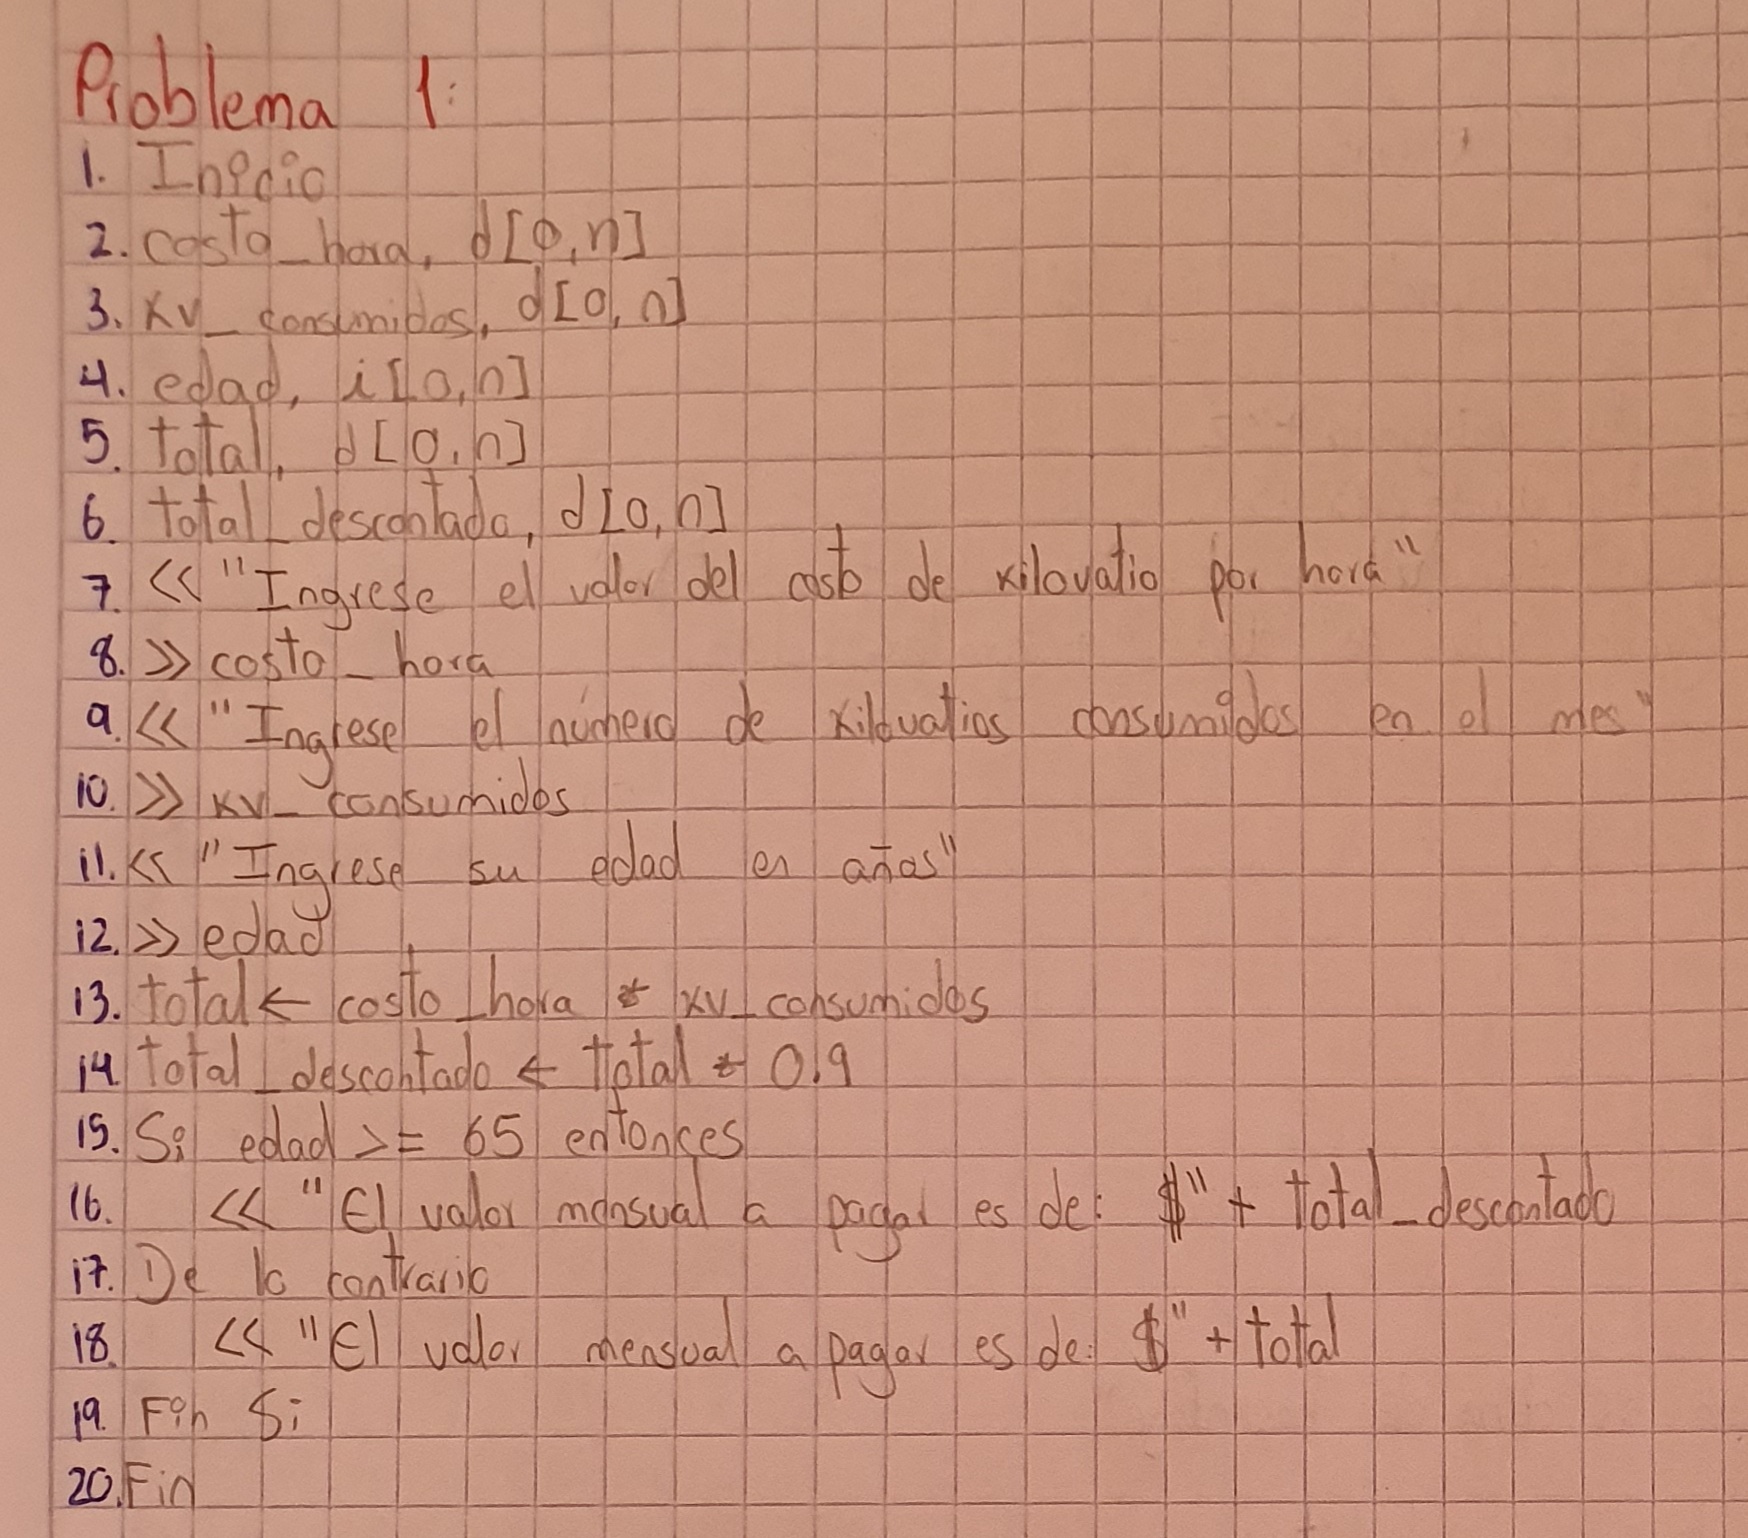 Problema 1:
1. Inicio
2. costo_hora, d[0,n]
3. kv_consumidos, d[0,n]
4. edad, i[0,n]
5. total, d[0,n]
6. total_descontado, d[0,n]
7. << "Ingrese el valor del costo de kilovatio por hora"
8. >> costo_hora
9. << "Ingrese el número de kilovatios consumidos en el mes"
10. >> kv_consumidos
11. << "Ingrese su edad en años"
12. >> edad
13. total ← costo_hora * kv_consumidos
14. total_descontado ← total * 0.9
15. Si edad >= 65 entonces
16. << "El valor mensual a pagar es de: $" + total_descontado
17. De lo contrario
18. << "El valor mensual a pagar es de: $" + total
19. Fin Si
20. Fin